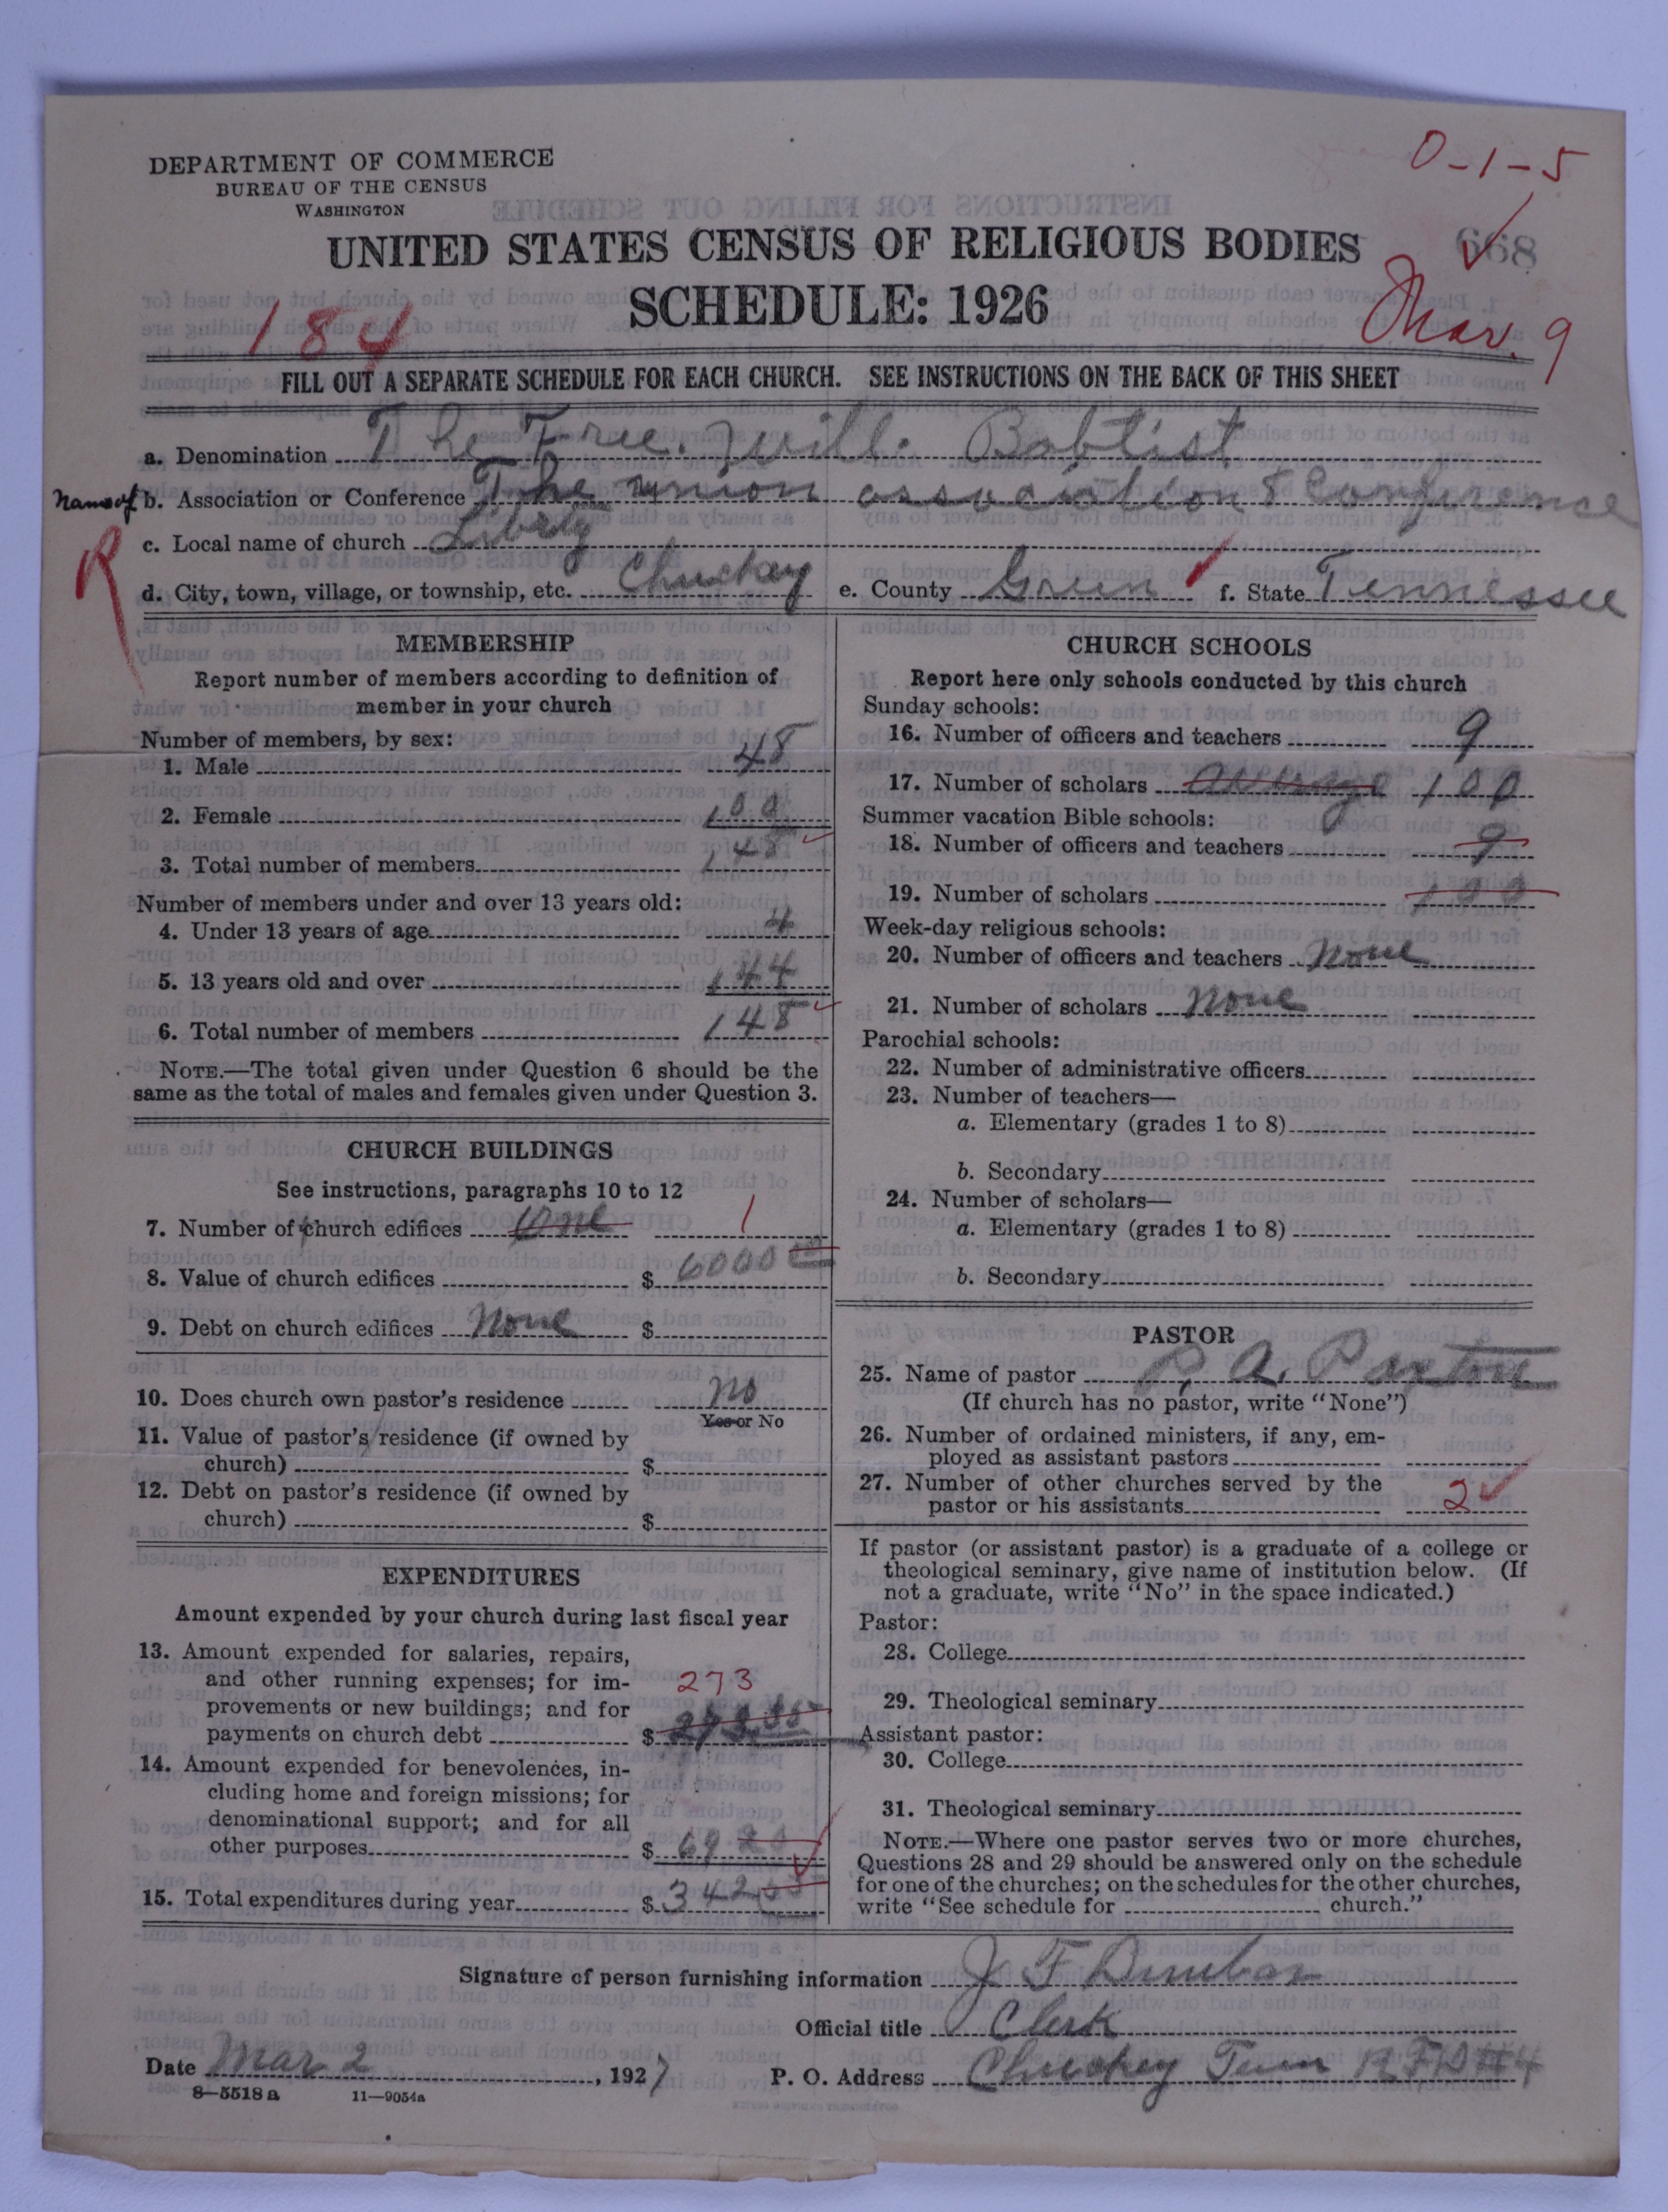 DEPARTMENT OF COMMERCE
BUREAU OF THE CENSUS
WASHINGTON
0-1-5
UNITED STATES CENSUS OF RELIGIOUS BODIES
668
SCHEDULE: 1926
184
Mar. 9
FILL OUT A SEPARATE SCHEDULE FOR EACH CHURCH. SEE INSTRUCTIONS ON THE BACK OF THIS SHEET
a. Denomination The Free. Will. Babtist
Name of b. Association or Conference The union association & Conference
R
c. Local name of church Librty
d. City, town, village, or township, etc. Chuckey e. County Green f. State Tennessee
MEMBERSHIP
Report number of members according to definition of
member in your church
Number of members, by sex:
1. Male 48
2. Female 100
3. Total number of members 148
Number of members under and over 13 years old:
4. Under 13 years of age 4
5. 13 years old and over 144
6. Total number of members 148
NOTE.—The total given under Question 6 should be the
same as the total of males and females given under Question 3.
CHURCH BUILDINGS
See instructions, paragraphs 10 to 12
7. Number of church edifices One 1
8. Value of church edifices $ 6000 00
9. Debt on church edifices None $
10. Does church own pastor's residence No
Yes or No
11. Value of pastor's residence (if owned by
church) $
12. Debt on pastor's residence (if owned by
church) $
EXPENDITURES
Amount expended by your church during last fiscal year
13. Amount expended for salaries, repairs,
and other running expenses; for im-
provements or new buildings; and for
payments on church debt $
273
14. Amount expended for benevolences, in-
cluding home and foreign missions; for
denominational support; and for all
other purposes $ 69
15. Total expenditures during year $ 342
CHURCH SCHOOLS
Report here only schools conducted by this church
Sunday schools:
16. Number of officers and teachers 9
17. Number of scholars average 100
Summer vacation Bible schools:
18. Number of officers and teachers 9
19. Number of scholars 100
Week-day religious schools:
20. Number of officers and teachers None
21. Number of scholars None
Parochial schools:
22. Number of administrative officers
23. Number of teachers—
a. Elementary (grades 1 to 8)
b. Secondary
24. Number of scholars—
a. Elementary (grades 1 to 8)
b. Secondary
PASTOR
25. Name of pastor P. A. Paxton
(If church has no pastor, write "None")
26. Number of ordained ministers, if any, em-
ployed as assistant pastors
27. Number of other churches served by the
pastor or his assistants 2
If pastor (or assistant pastor) is a graduate of a college or
theological seminary, give name of institution below. (If
not a graduate, write "No" in the space indicated.)
Pastor:
28. College
29. Theological seminary
Assistant pastor:
30. College
31. Theological seminary
NOTE.—Where one pastor serves two or more churches,
Questions 28 and 29 should be answered only on the schedule
for one of the churches; on the schedules for the other churches,
write "See schedule for church."
Signature of person furnishing information J F Dunbar
Official title Clerk
Date Mar 2, 1927 P. O. Address Chuckey Tenn R.F.D #4
8—5518 a 11—9054a